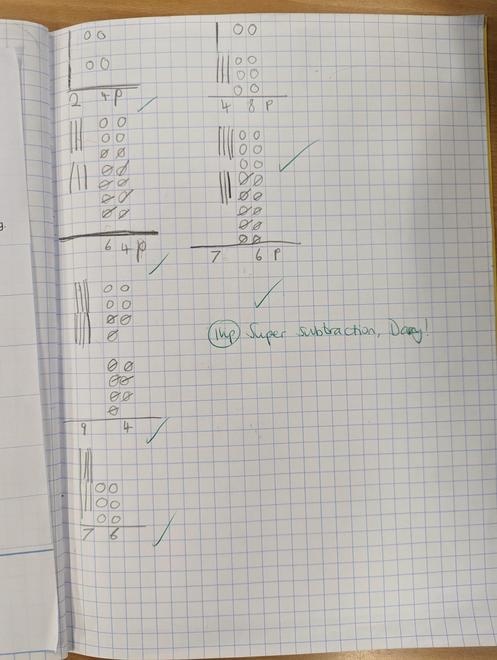 2 4p
4 8 p
6 4p
7 6 p
1hp Super subtraction,
9 4
7 6